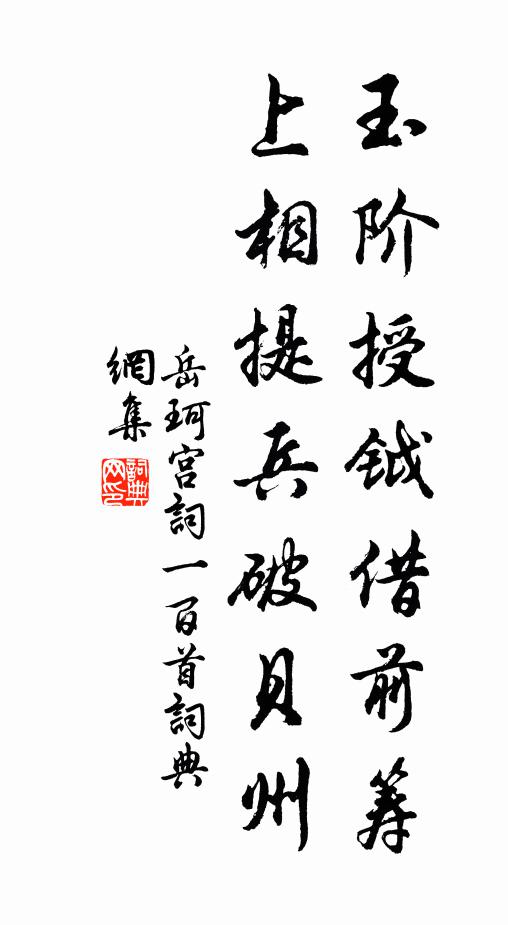 玉阶授钺借前筹
上相提兵破贝州
岳珂宫詞一百首詞典
網集
詞典网印